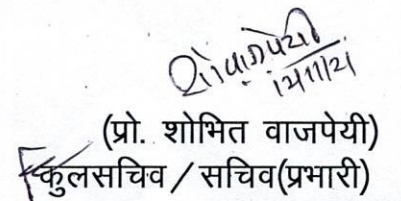 (प्रो. शोभित वाजपेयी)
कुलसचिव / सचिव(प्रभारी)